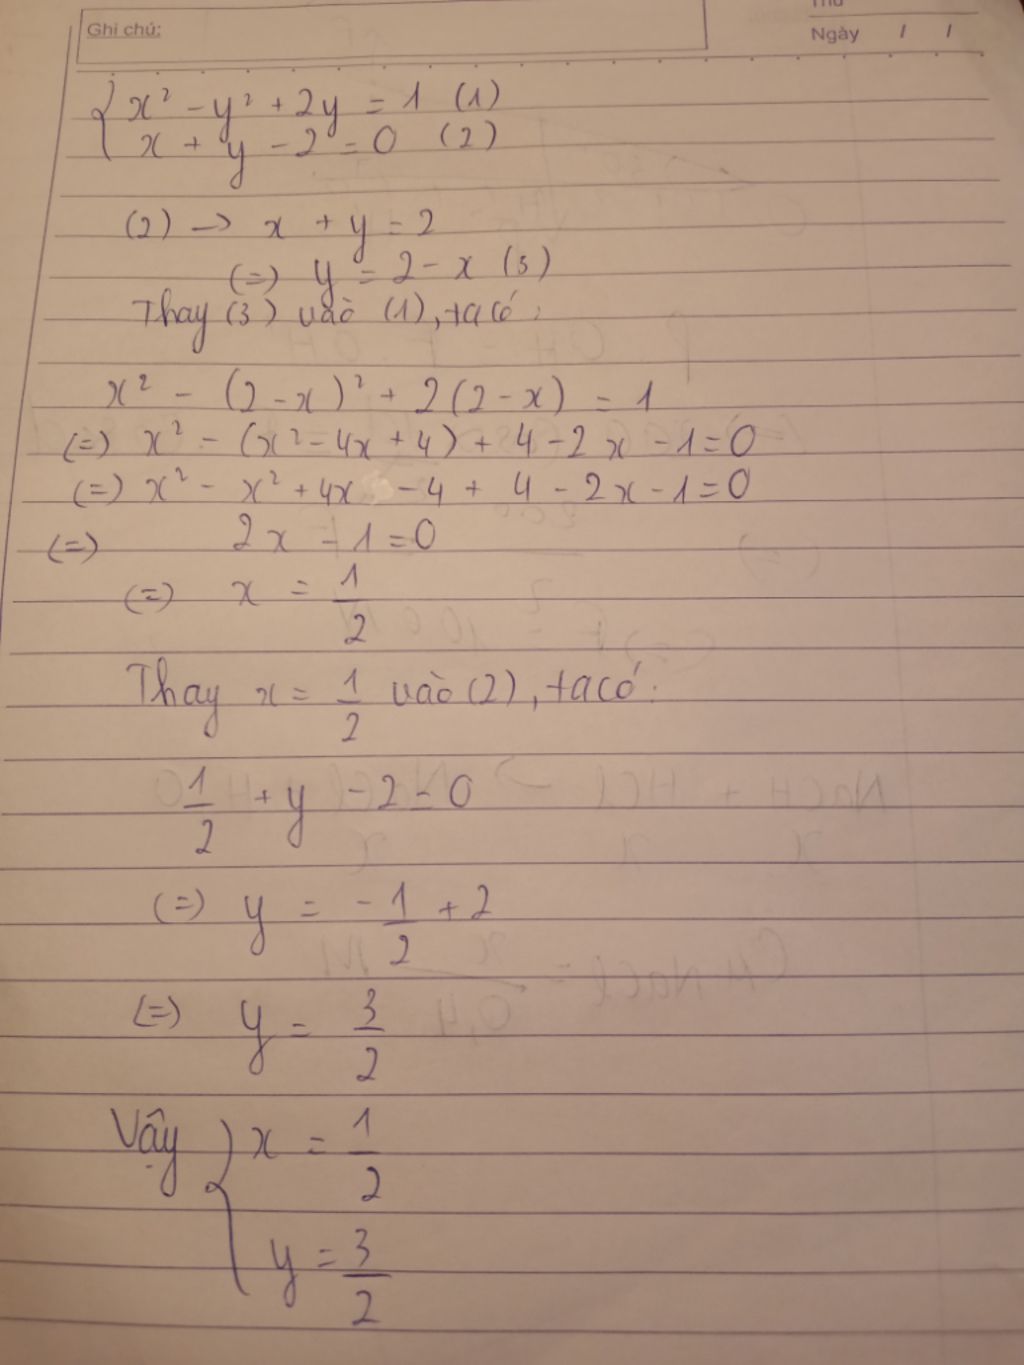 Ghi chú:
Thứ
Ngày / /
{ x² - y² + 2y = 1 (1)
x + y - 2 = 0 (2)
(2) → x + y = 2
(=) y = 2 - x (3)
Thay (3) vào (1), ta có:
x² - (2 - x)² + 2(2 - x) = 1
(=) x² - (x² - 4x + 4) + 4 - 2x - 1 = 0
(=) x² - x² + 4x - 4 + 4 - 2x - 1 = 0
(=) 2x - 1 = 0
(=) x = 1/2
Thay x = 1/2 vào (2), ta có:
1/2 + y - 2 = 0
(=) y = -1/2 + 2
(=) y = 3/2
Vậy { x = 1/2
y = 3/2